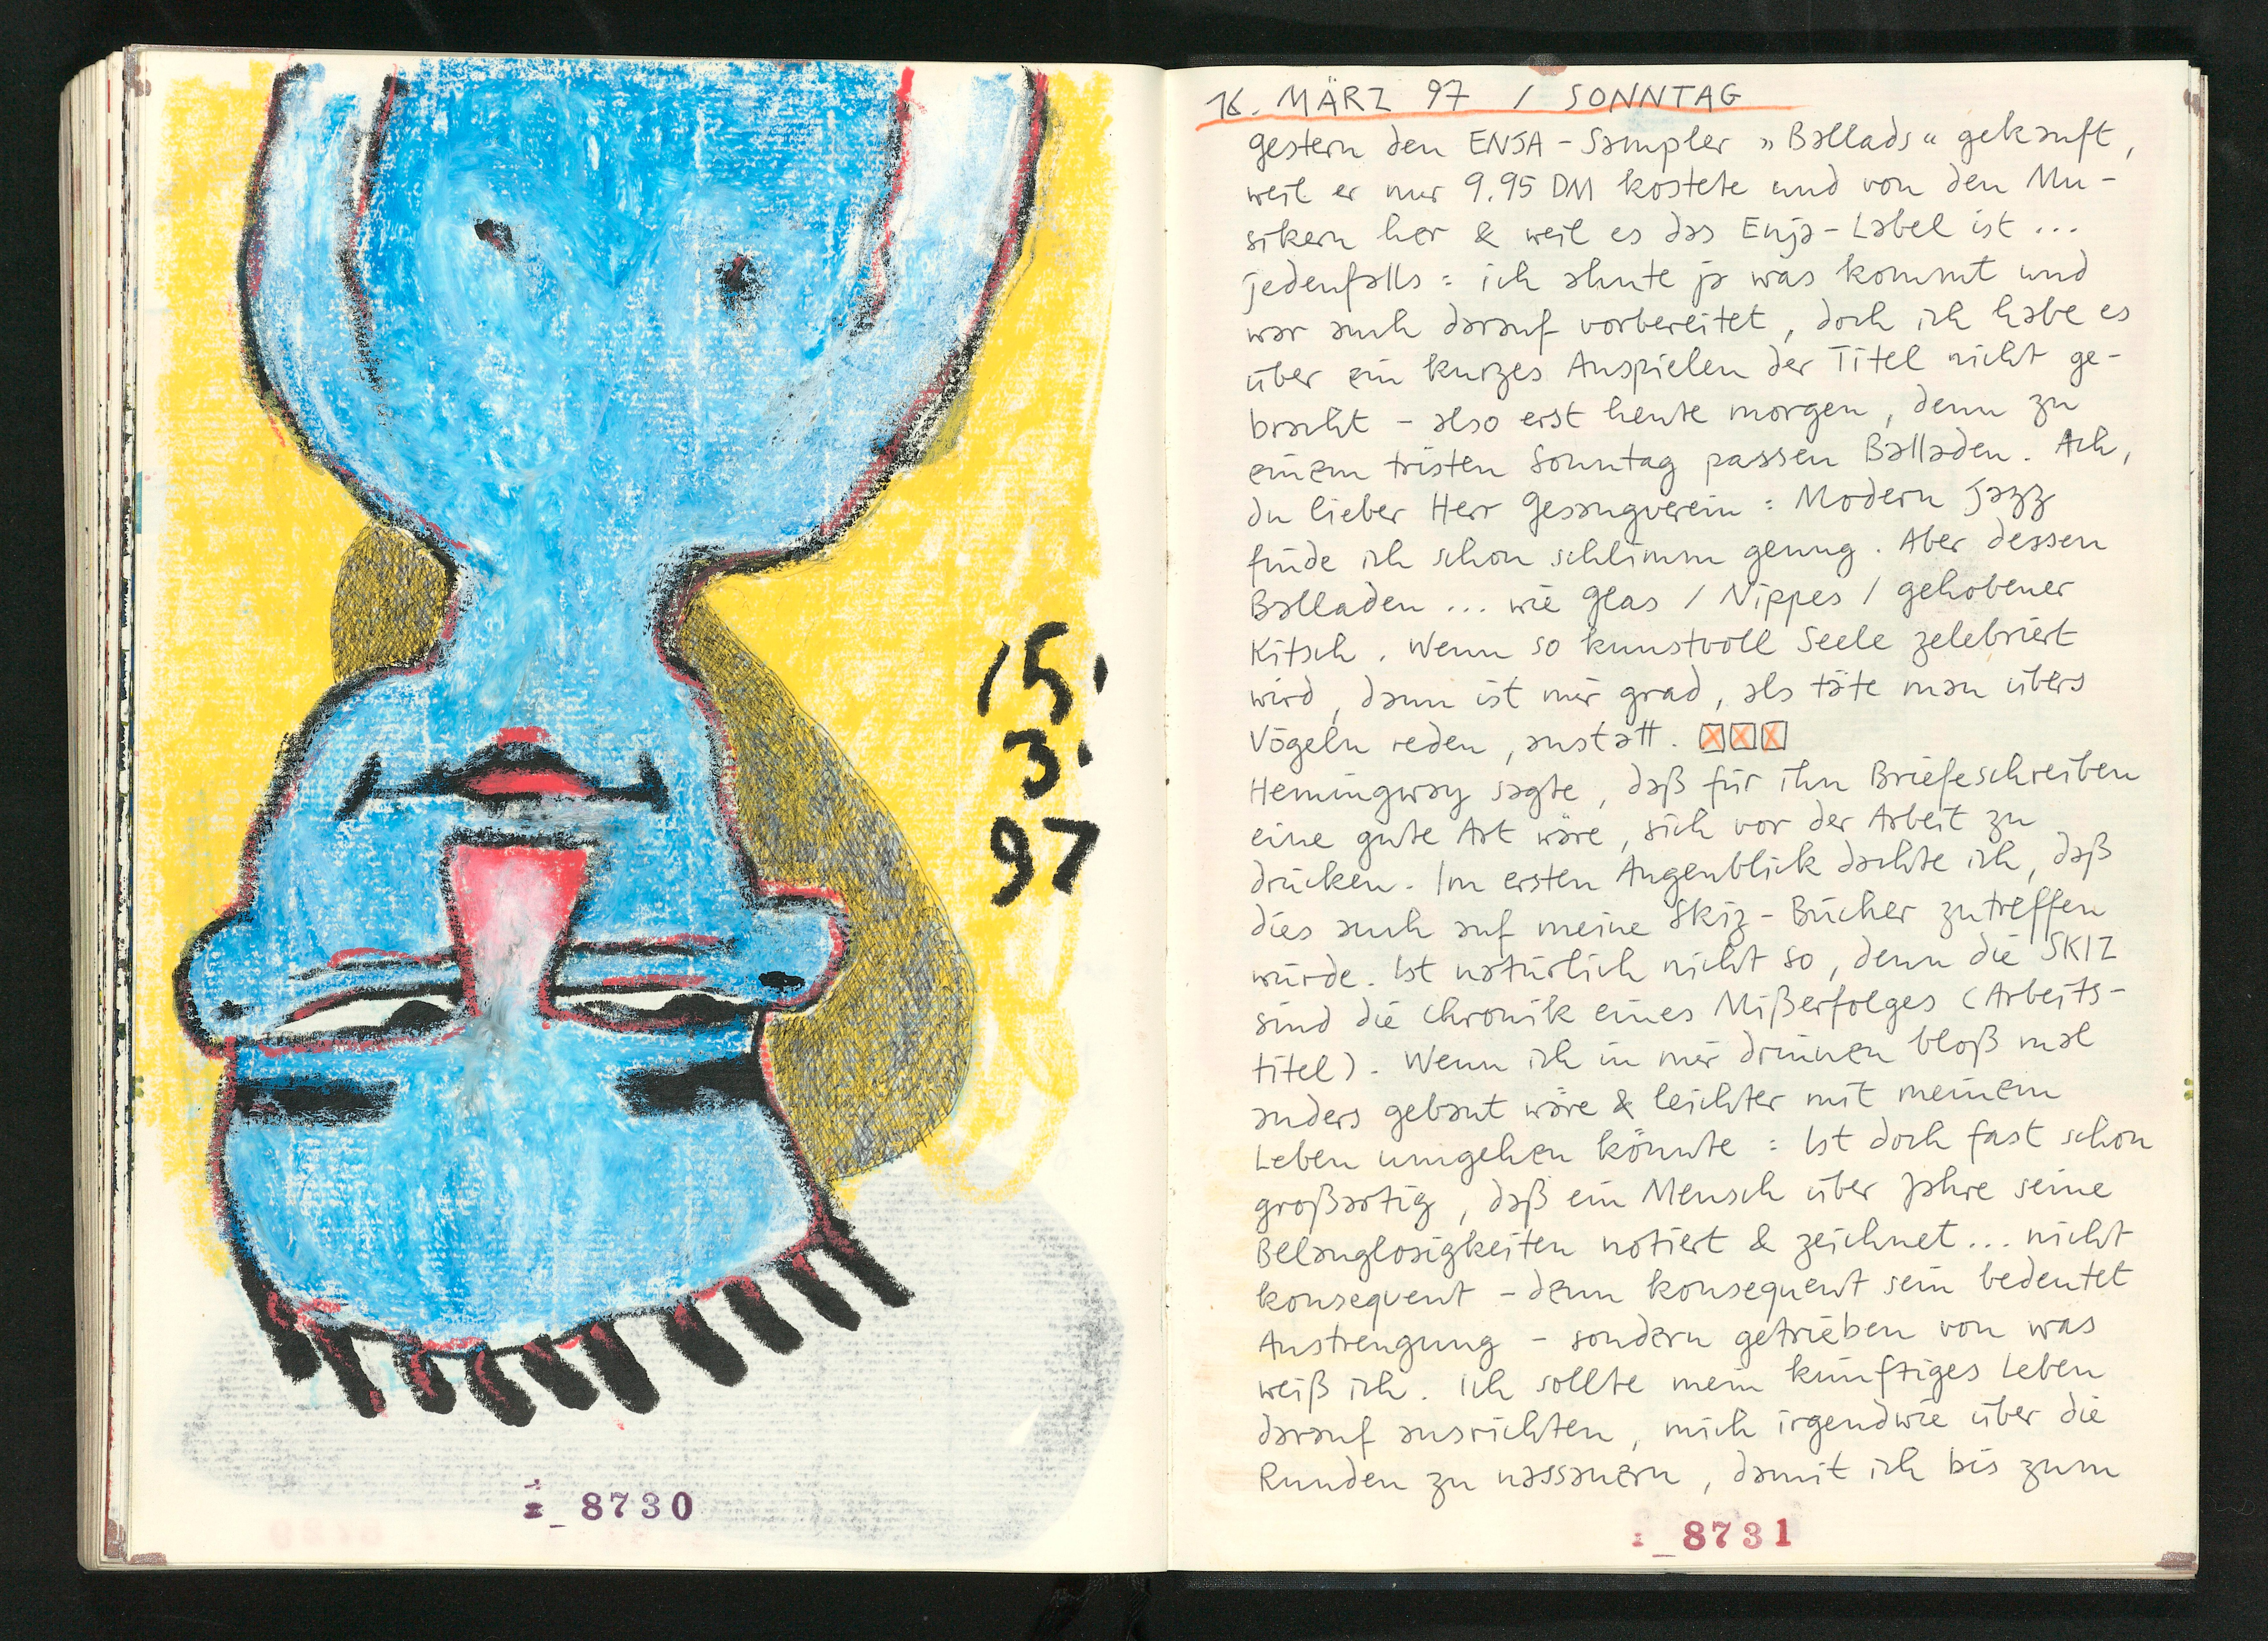 15.
3.
97
8730
16. MÄRZ 97 / SONNTAG
gestern den ENJA-Sampler »Ballads« gekauft,
weil er nur 9.95 DM kostete und von den Mu-
sikern her & weil es das Enja-Label ist ...
jedenfalls: ich ahnte ja was kommt und
war auch darauf vorbereitet, doch ich habe es
über ein kurzes Anspielen der Titel nicht ge-
bracht - also erst heute morgen, denn zu
einem tristen Sonntag passen Balladen. Ach,
du lieber Herr Gesangverein: Modern Jazz
finde ich schon schlimm genug. Aber dessen
Balladen ... wie Glas / Nippes / gehobener
Kitsch. Wenn so kunstvoll Seele zelebriert
wird, dann ist mir grad, als täte man übers
Vögeln reden, anstatt.
Hemingway sagte, daß für ihn Briefeschreiben
eine gute Art wäre, sich vor der Arbeit zu
drücken. Im ersten Augenblick dachte ich, daß
dies auch auf meine Skiz-Bücher zutreffen
würde. Ist natürlich nicht so, denn die SKIZ
sind die Chronik eines Mißerfolges (Arbeits-
titel). Wenn ich in mir drinnen bloß mal
anders gebaut wäre & leichter mit meinem
Leben umgehen könnte: Ist doch fast schon
großartig, daß ein Mensch über Jahre seine
Belanglosigkeiten notiert & zeichnet... nicht
konsequent - denn konsequent sein bedeutet
Anstrengung - sondern getrieben von was
weiß ich. Ich sollte mein künftiges Leben
darauf ausrichten, mich irgendwie über die
Runden zu nassauern, damit ich bis zum
8731